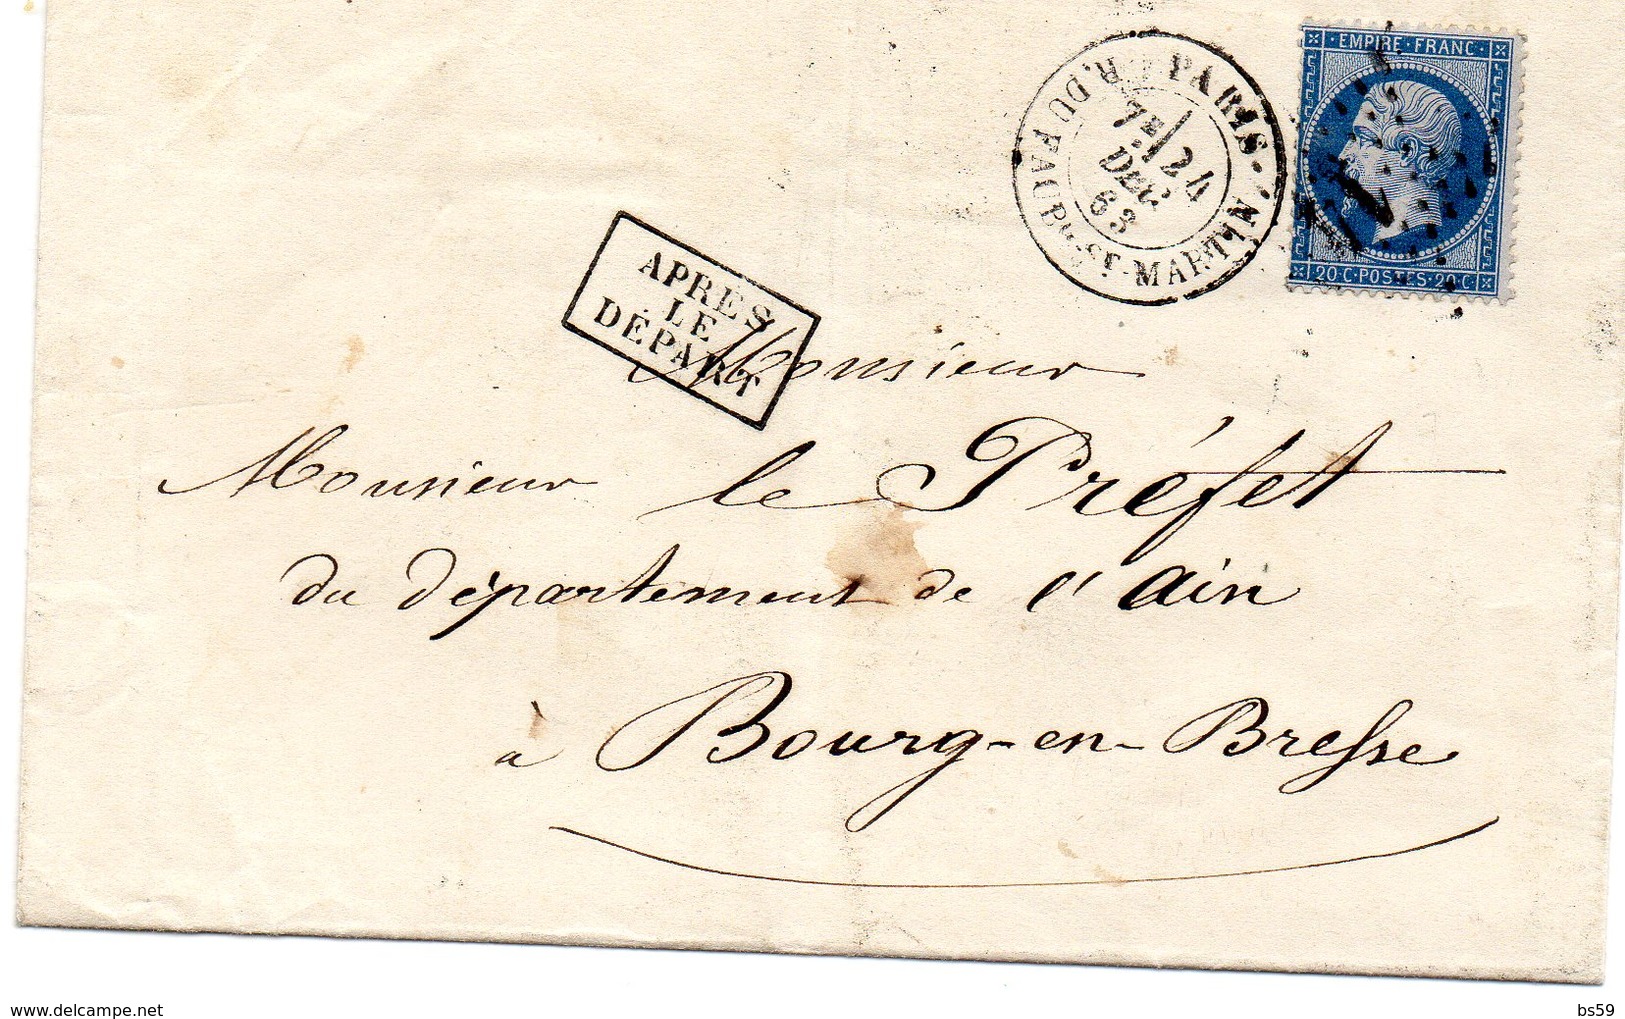 EMPIRE·FRANC·
20·C·POSTES·20·C·
PARIS·
R. DU FAUB. ST-MARTIN
7E
24
DEC.
63
APRÈS
LE
DÉPART
Monsieur
Monsieur le Préfet
du département de l'ain
à Bourg-en-Bresse
www.delcampe.net
bs59